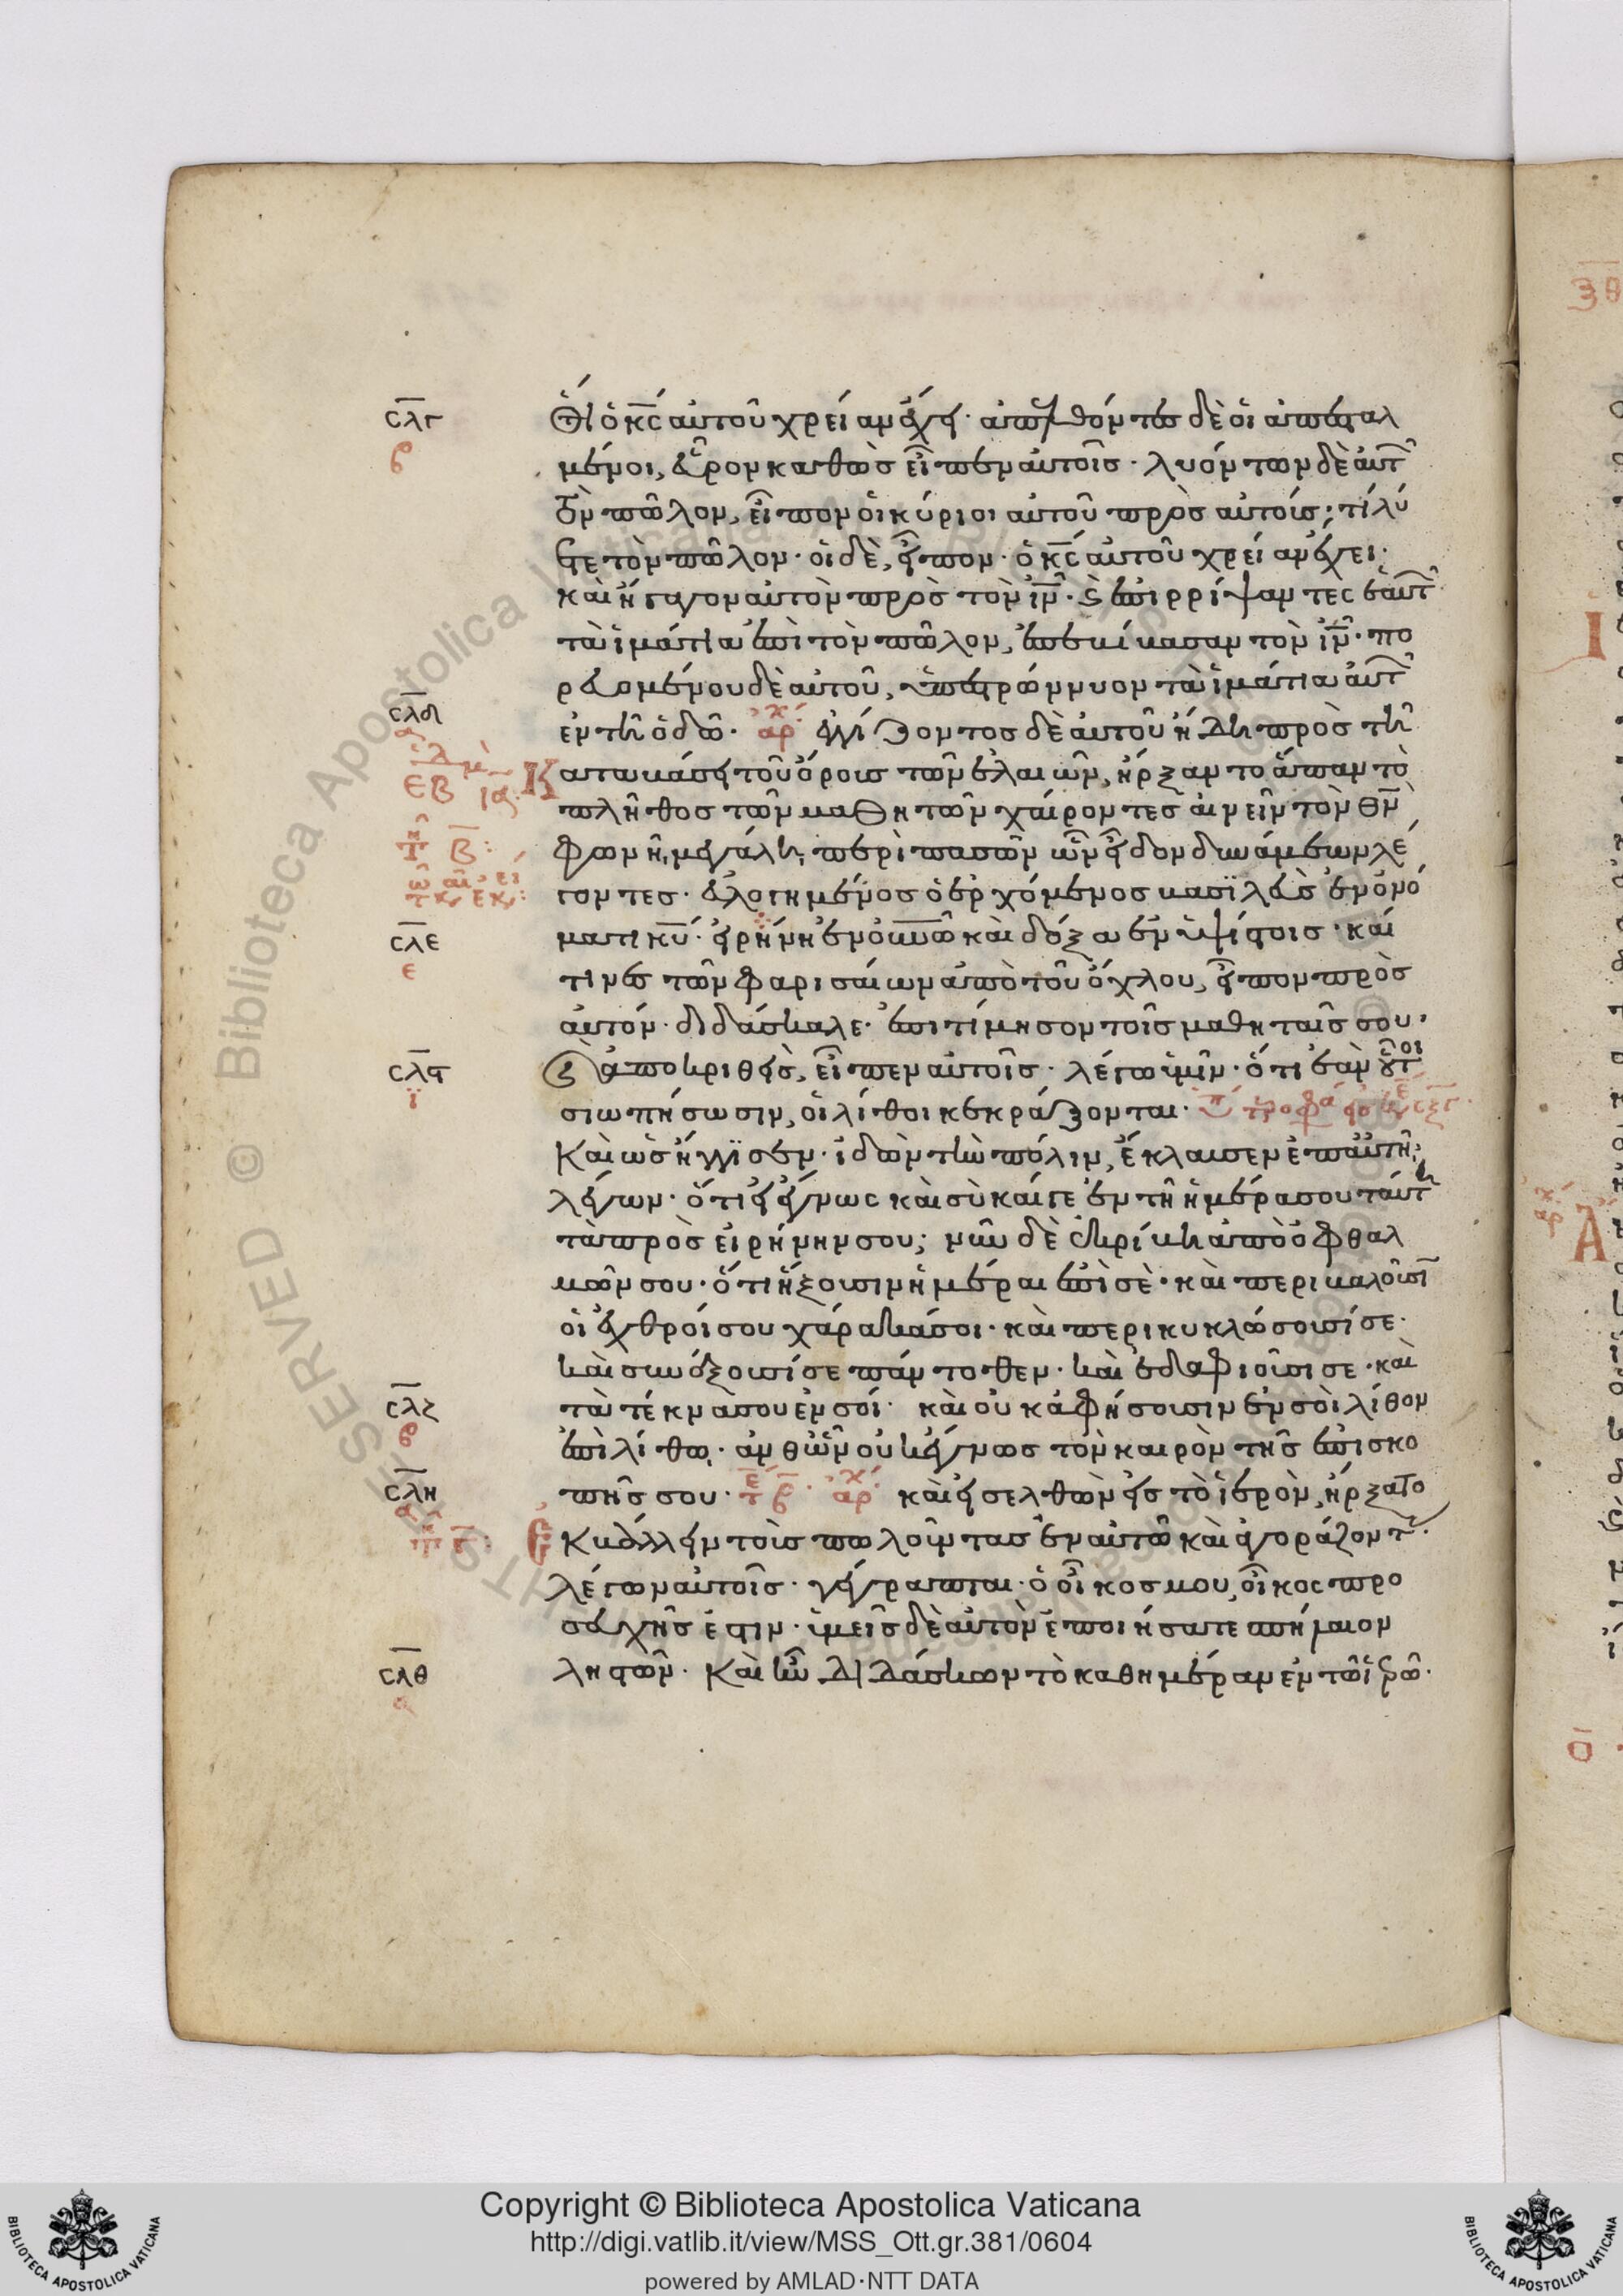 ὅτι ὁ κ̅ς̅ αὐτοῦ χρείαν ἔχει· ἀπελθόντες δὲ οἱ ἀπεσταλ
μένοι, εὗρον καθὼς εἶπεν αὐτοῖς· λυόντων δὲ αὐτ
τὸν πῶλον, εἶπον οἱ κύριοι αὐτοῦ πρὸς αὐτούς; τί λύ
ετε τὸν πῶλον· οἱ δὲ, εἶπον· ὁ κ̅ς̅ αὐτοῦ χρείαν ἔχει·
καὶ ἤγαγον αὐτὸν πρὸς τὸν ι̅ν̅· καὶ ἐπιρρίψαντες ἑαυτ
τὰ ἱμάτια ἐπὶ τὸν πῶλον, ἐπεβίβασαν τὸν ι̅ν̅· πο
ρευομένου δὲ αὐτοῦ, ὑπεστρώννυον τὰ ἱμάτια αὐτ
ἐν τῆ ὁδῶ· ἀρχ ἐγγίζοντος δὲ αὐτοῦ ἤδη πρὸς τῆ
καταβάσει τοῦ ὄρους τῶν ἐλαιῶν, ἤρξαντο ἅπαν τὸ
πλῆθος τῶν μαθητῶν χαίροντες αἰνεῖν τὸν θ̅ν̅
φωνῆ μεγάλη, περὶ πασῶν ὧν εἶδον δυνάμεων λέ
γοντες· εὐλογημένος ὁ ἐρχόμενος βασιλεὺς ἐν ὀνό
ματι κ̅υ̅· εἰρήνη ἐν ο̅υ̅ν̅ω̅ καὶ δόξα ἐν ὑψίστοις· καί
τινες τῶν φαρισαίων ἀπὸ τοῦ ὄχλου, εἶπον πρὸς
αὐτόν· διδάσκαλε· ἐπιτίμησον τοῖς μαθηταῖς σου·
καὶ ἀποκριθεὶς, εἶπεν αὐτοῖς· λέγω ὑμῖν· ὅτι ἐὰν οὗτοι
σιωπήσωσιν, οἱ λίθοι κεκράζονται·
Καὶ ὡς ἤγγισεν· ἰδὼν τὴν πόλιν, ἔκλαυσεν ἐπ αὐτῆ·
λέγων· ὅτι εἰ ἔγνως καὶ σὺ καίγε ἐν τῆ ἡμέρα σου ταύτη
τὰ πρὸς εἰρήνην σου; νῦν δὲ ἐκρίβη ἀπὸ ὀφθαλ
μῶν σου· ὅτι ἥξουσιν ἡμέραι ἐπὶ σὲ· καὶ περιβαλοῦσιν
οἱ ἐχθροί σου χάρακά σοι· καὶ περικυκλώσουσί σε·
καὶ συνέξουσί σε πάντοθεν· καὶ ἐδαφιοῦσι σε· καὶ
τὰ τέκνα σου ἐν σοί· καὶ οὐκ ἀφήσουσιν ἐν σοὶ λίθον
ἐπὶ λίθω· ἀνθ ὧν οὐκ ἔγνως τὸν καιρὸν τῆς ἐπισκο
πῆς σου· ἀρχ καὶ εἰσελθὼν εἰς τὸ ἱερὸν, ἤρξατο
Ἐκβάλλειν τοὺς πωλοῦντας ἐν αὐτῶ καὶ ἀγοράζοντ·
λέγων αὐτοῖς· γέγραπται· ὁ οἶκος μου, οἶκος προ
σευχῆς ἐστιν· ὑμεῖς δὲ αὐτὸν ἐποιήσατε σπήλαιον
ληστῶν· Καὶ ἦν διδάσκων τὸ καθημέραν ἐν τῶ ἱερῶ·
ϲλγ
ϲλδ
ϲλε
ε
ϲλϛ
ϊ
ϲλζ
ϲλη
α
ϲλθ
α
Copyright © Biblioteca Apostolica Vaticana
http://digi.vatlib.it/view/MSS_Ott.gr.381/0604
powered by AMLAD·NTT DATA